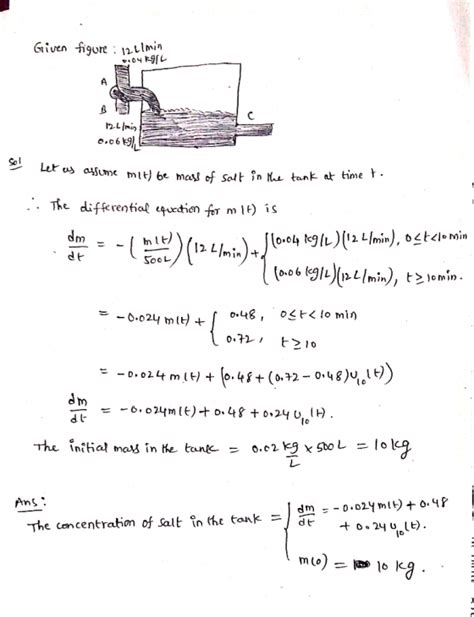 Given figure : 12 L/min
0.04 kg/L
A
B
C
12 L/min
0.06 kg/L
Sol
Let us assume m(t) be mass of salt in the tank at time t.
∴ The differential equation for m(t) is
dm/dt = -(m(t)/500L)(12 L/min) + { (0.04 kg/L)(12 L/min), 0≤t<10 min
(0.06 kg/L)(12 L/min), t≥10min.
= -0.024 m(t) + { 0.48, 0≤t<10 min
0.72, t≥10
= -0.024 m(t) + (0.48 + (0.72 - 0.48)U₁₀(t))
dm/dt = -0.024m(t) + 0.48 + 0.24 U₁₀(t).
The initial mass in the tank = 0.02 kg/L × 500L = 10 kg
Ans:
The concentration of salt in the tank = { dm/dt = -0.024m(t) + 0.48
+ 0.24 U₁₀(t).
m(0) = 10 kg.